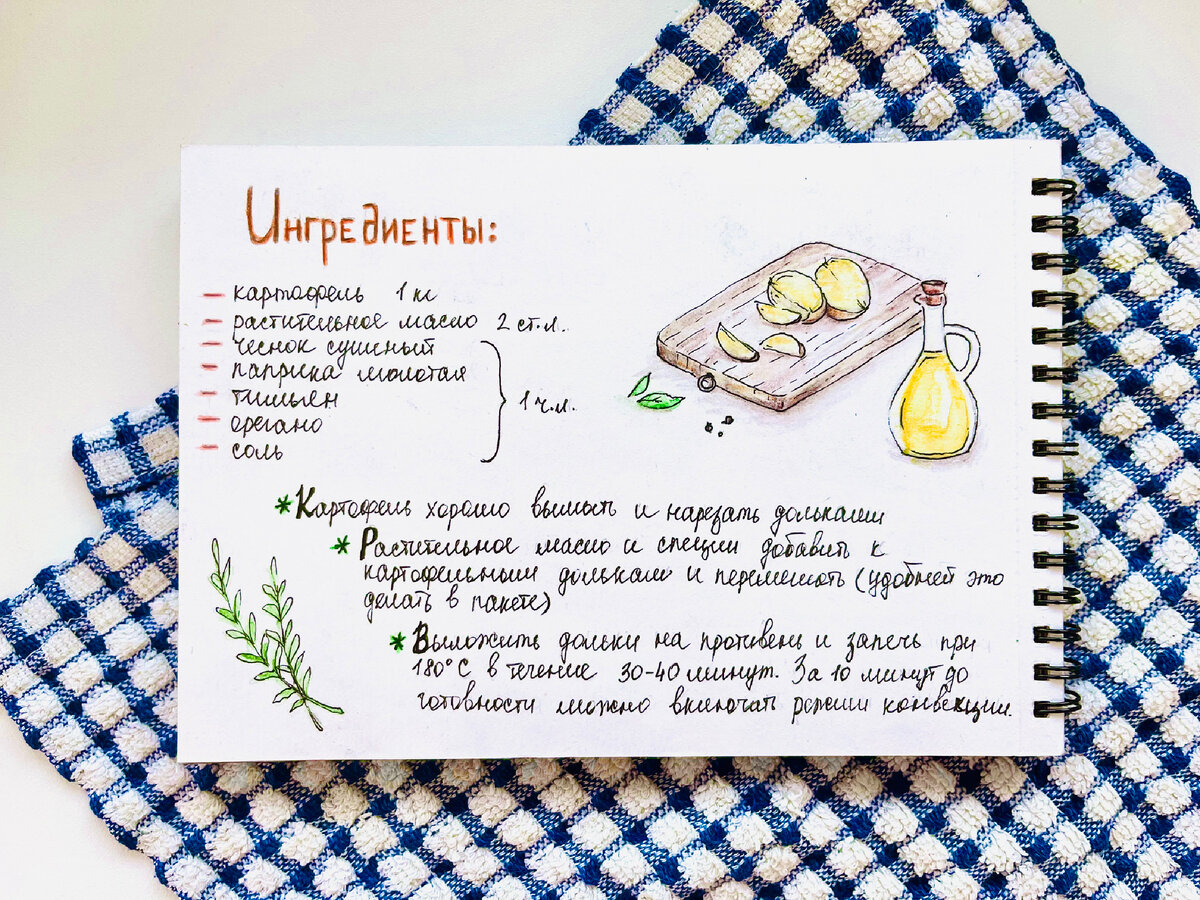 Ингредиенты:
— картофель 1 кг
— растительное масло 2 ст.л.
— чеснок сушёный
— паприка молотая
— тимьян
— орегано
— соль
1 ч.л.
* Картофель хорошо вымыть и нарезать дольками
* Растительное масло и специи добавить к
картофельным долькам и перемешать (удобней это
делать в пакете)
* Выложить дольки на противень и запечь при
180°С в течение 30-40 минут. За 10 минут до
готовности можно включать режим конвекции.